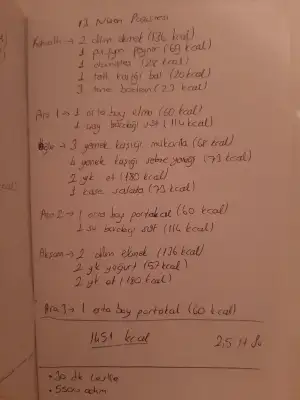 13 Nisan Pazartesi
Kahvaltı → 2 dilim ekmek (136 kcal)
1 peynir (69 kcal)
1 (kcal)
1 tatlı kaşığı bal (20 kcal)
3 tane badem (23 kcal)
Ara 1 → 1 orta boy elma (60 kcal)
1 su bardağı süt (114 kcal)
Öğle → 3 yemek kaşığı makarna (68 kcal)
4 yemek kaşığı sebze yemeği (73 kcal)
2 yk et (180 kcal)
1 kase salata (73 kcal)
Ara 2 → 1 orta boy portakal (60 kcal)
1 su bardağı süt (114 kcal)
Akşam → 2 dilim ekmek (136 kcal)
2 yk yoğurt (57 kcal)
2 yk et (180 kcal)
Ara 3 → 1 orta boy portakal (60 kcal)
1451 kcal 2,5 lt su
• 30 dk
• 5500 adım